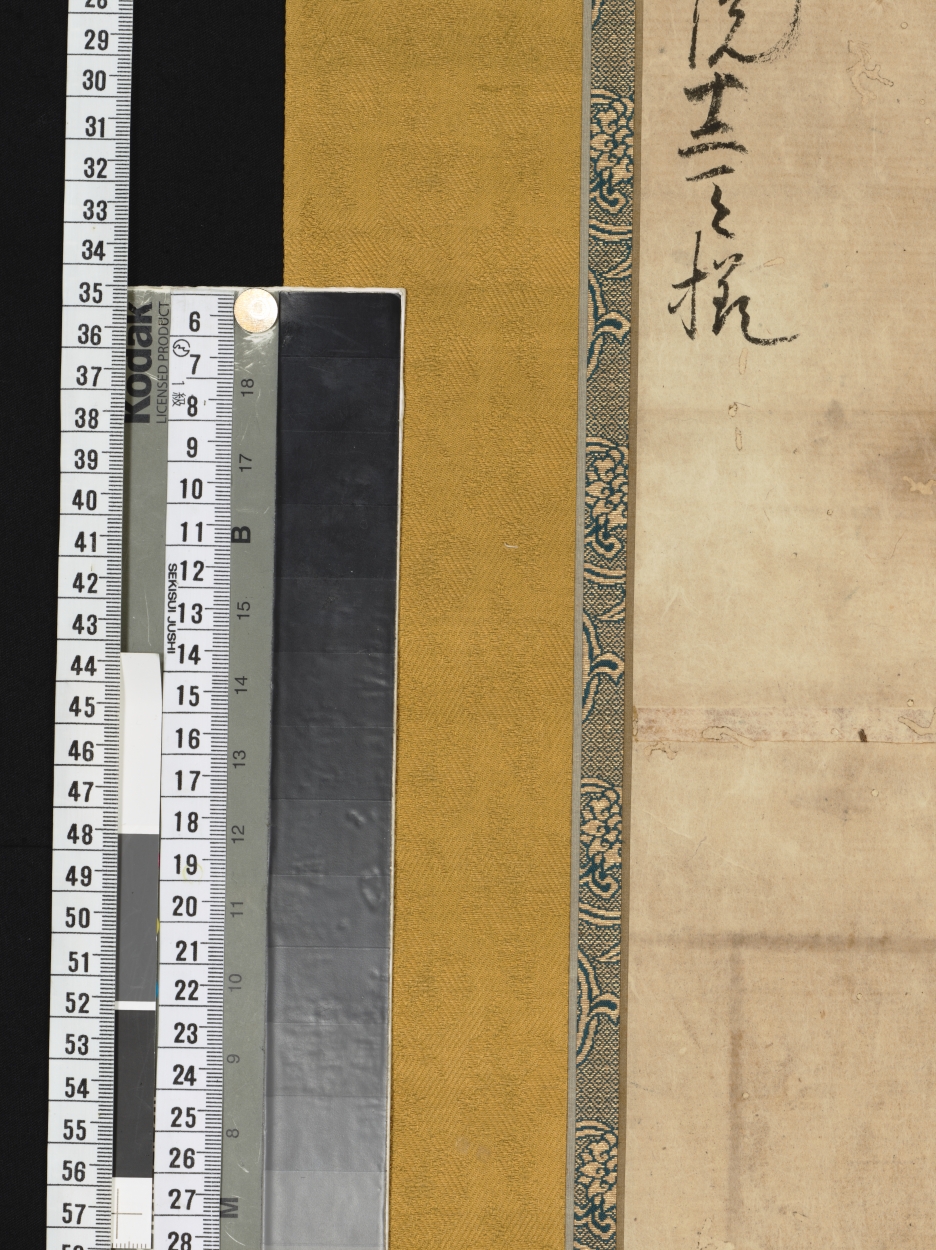 29
30
31
32
33
34
35
36
37
38
39
40
41
42
43
44
45
46
47
48
49
50
51
52
53
54
55
56
57
Kodak
LICENSED PRODUCT
6
7
1級
8
9
10
11
12
13
14
15
16
17
18
19
20
21
22
23
24
25
26
27
28
SEKISUI JUSHI
18
17
B
15
14
13
12
11
10
9
8
M
院